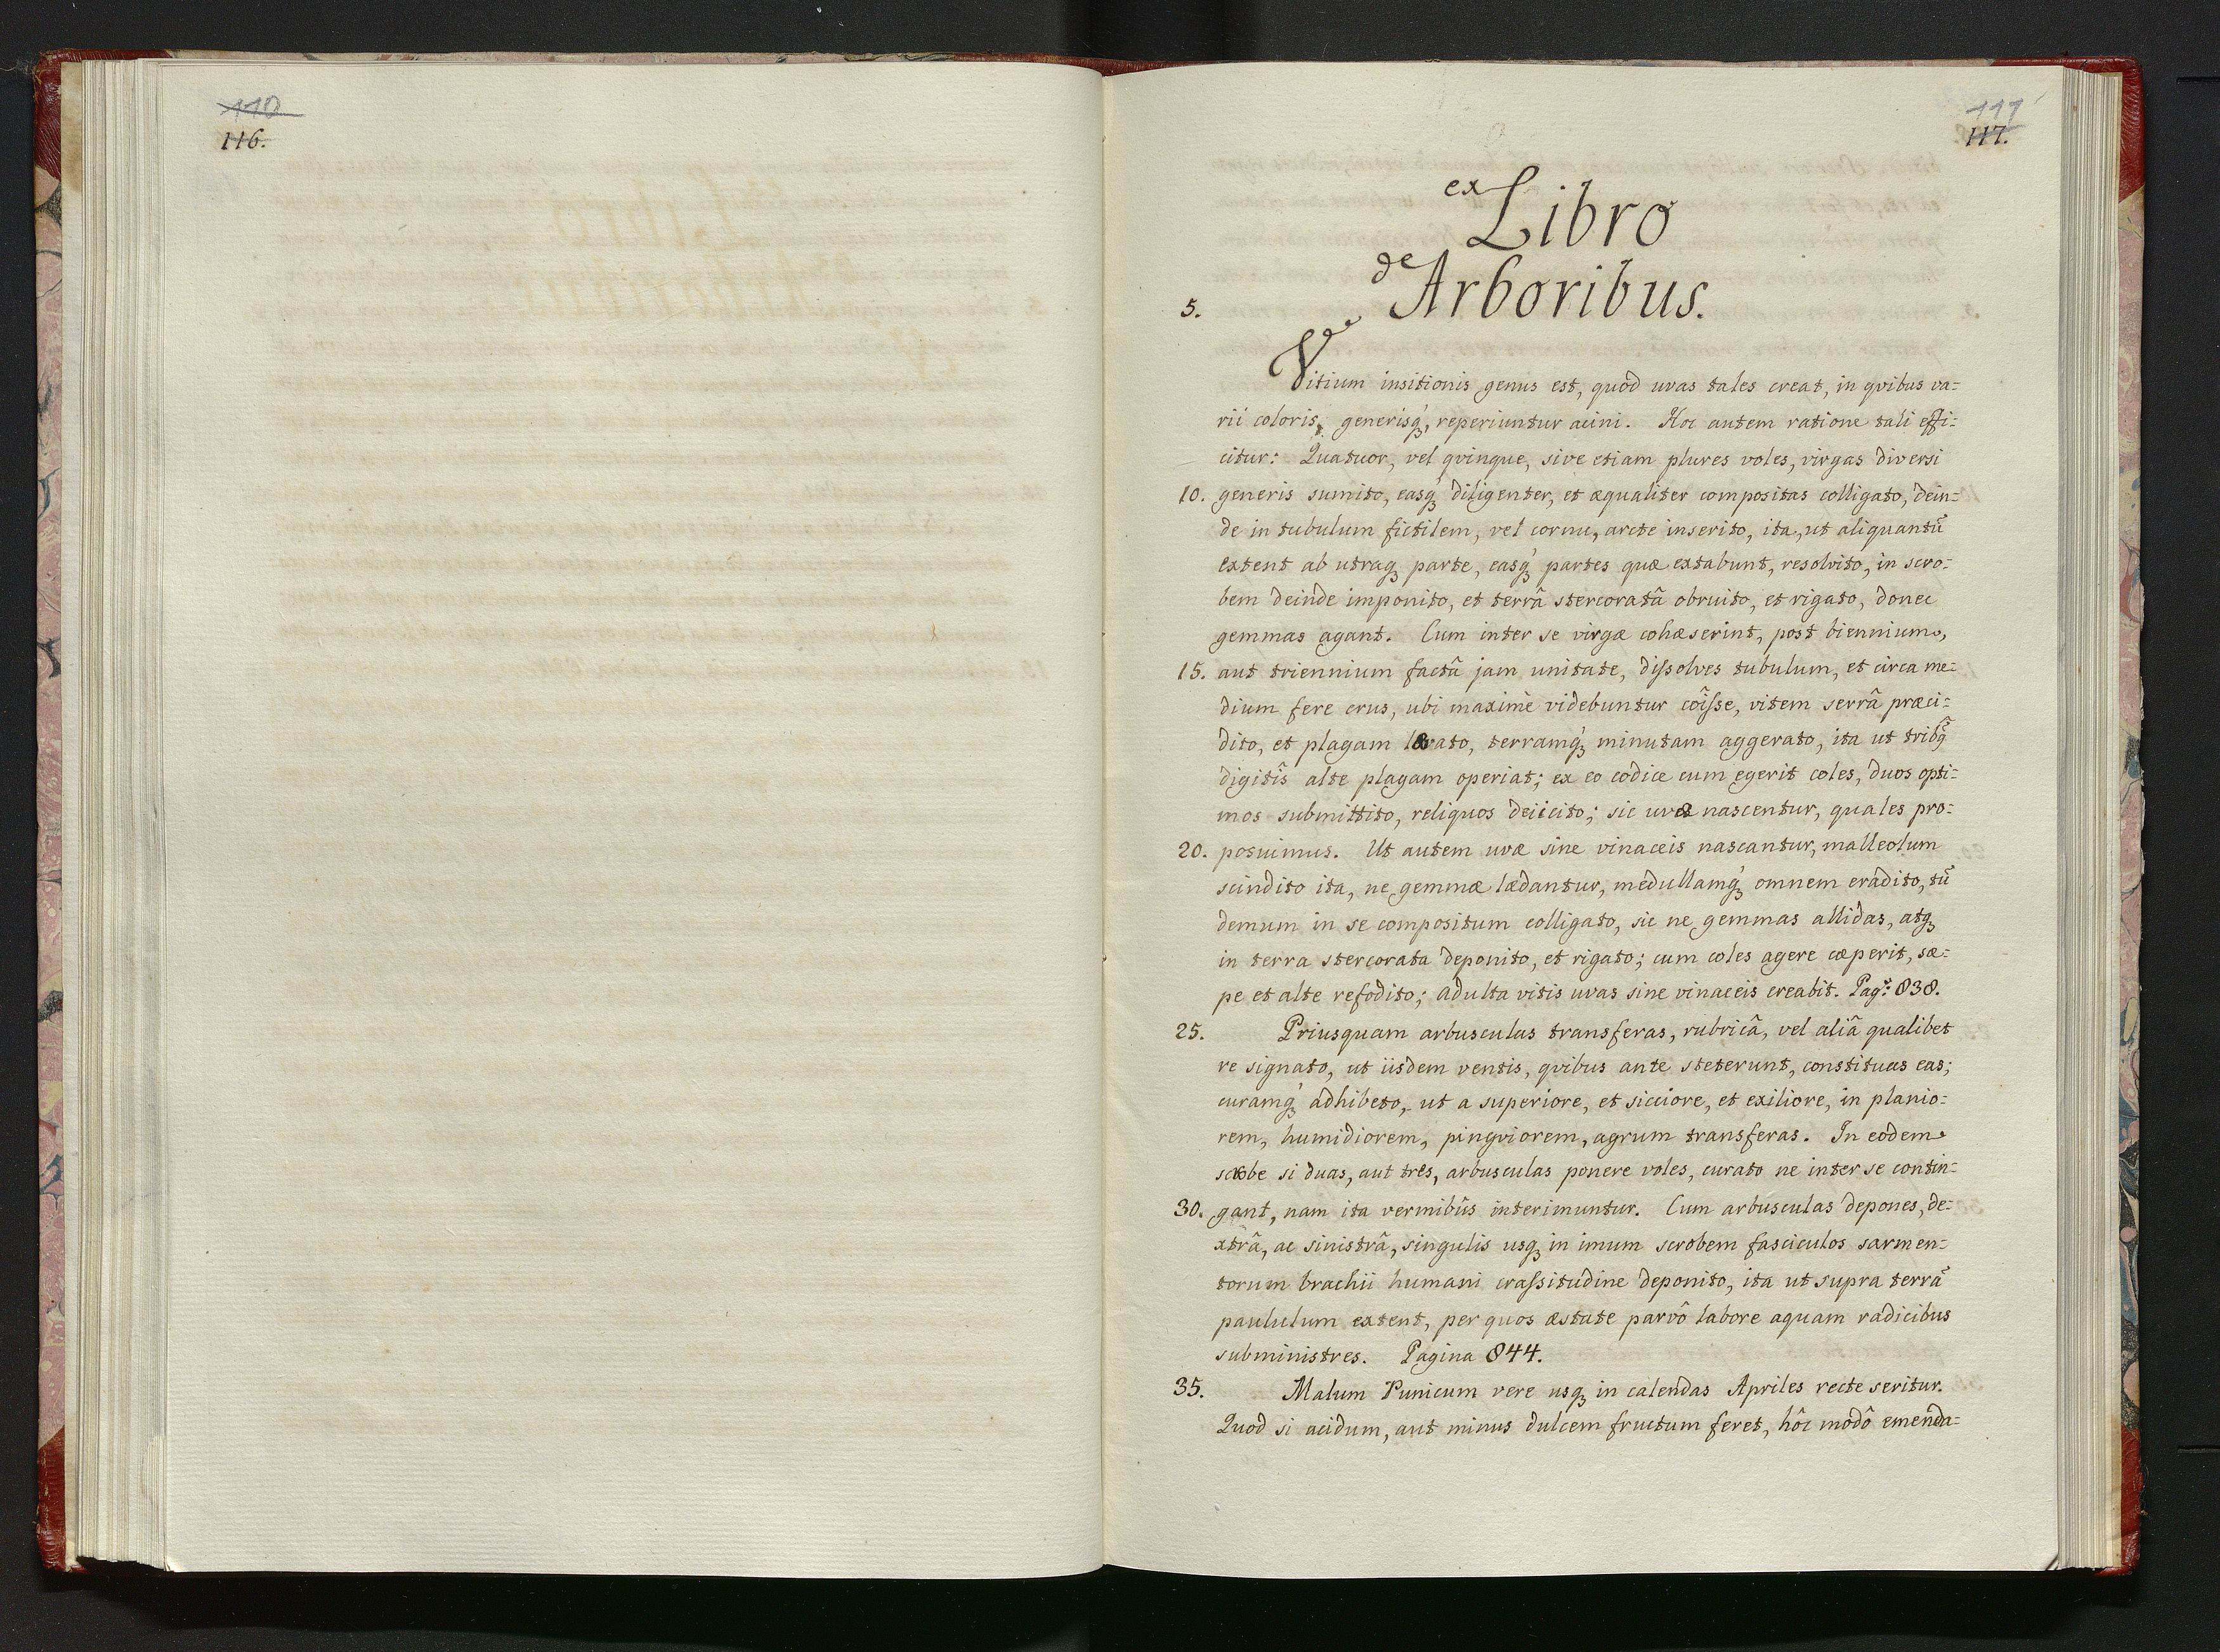 110
116.
111
117.
ex Libro
de Arboribus.
5.
Vitium insitionis genus est, quod uvas tales creat, in qvibus va=
rii coloris, generisq́ꝫ, reperiuntur acini. Hoc autem ratione tali effi=
citur: Quatuor, vel qvinque, sive etiam plures voles, virgas diversi
10. generis sumito, easq́ꝫ diligenter, et æqualiter compositas colligato, dein=
de in tubulum fictilem, vel cornu, arcte inserito, ita, ut aliquantū
extent ab utraqꝫ parte, easq́ꝫ partes quæ extabunt, resolvito, in scro=
bem deinde imponito, et terrâ stercoratâ obruito, et rigato, donec
gemmas agant. Cum inter se virgæ cohæserint, post biennium,
15. aut triennium factâ jam unitate, dissolves tubulum, et circa me=
dium fere crus, ubi maximè videbuntur coîsse, vitem serrâ præci=
dito, et plagam lævato, terramq́ꝫ minutam aggerato, ita ut tribꝰ
digitîs alte plagam operiat; ex eo codice cum egerit coles, duos opti=
mos submittito, reliquos deiicito; sic uvæ nascentur, quales pro=
20. posuimus. Ut autem uvæ sine vinaceis nascantur, malleolum
scindito ita, ne gemmæ lædantur, medullamq́ꝫ omnem eradito, tū
demum in se compositum colligato, sic ne gemmas allidas, atqꝫ
in terra stercorata deponito, et rigato; cum coles agere cæperit, sæ=
pe et alte refodito; adulta vitis uvas sine vinaceis creabit. Pag: 838.
25. Priusquam arbusculas transferas, rubricâ, vel aliâ qualibet
re signato, ut iisdem ventis, qvibus ante steterunt, constituas eas;
curamq́ꝫ adhibeto, ut a superiore, et sicciore, et exiliore, in planio=
rem, humidiorem, pingviorem, agrum transferas. In eodem
scrobe si duas, aut três, arbusculas ponere voles, curato ne inter se contin=
30. gant, nam ita vermibûs interimuntur. Cum arbusculas depones, de=
xtrâ, ac sinistrâ, singulis usqꝫ in imum scrobem fasciculos sarmen=
torum brachii humani crassitudine deponito, ita ut supra terrā
paululum extent, per quos æstate parvô labore aquam radicibus
subministres. Pagina 844.
35. Malum Punicum vere usqꝫ in calendas Apriles recte seritur.
Quod si acidum, aut minus dulcem fructum feret, hôc modô emenda=